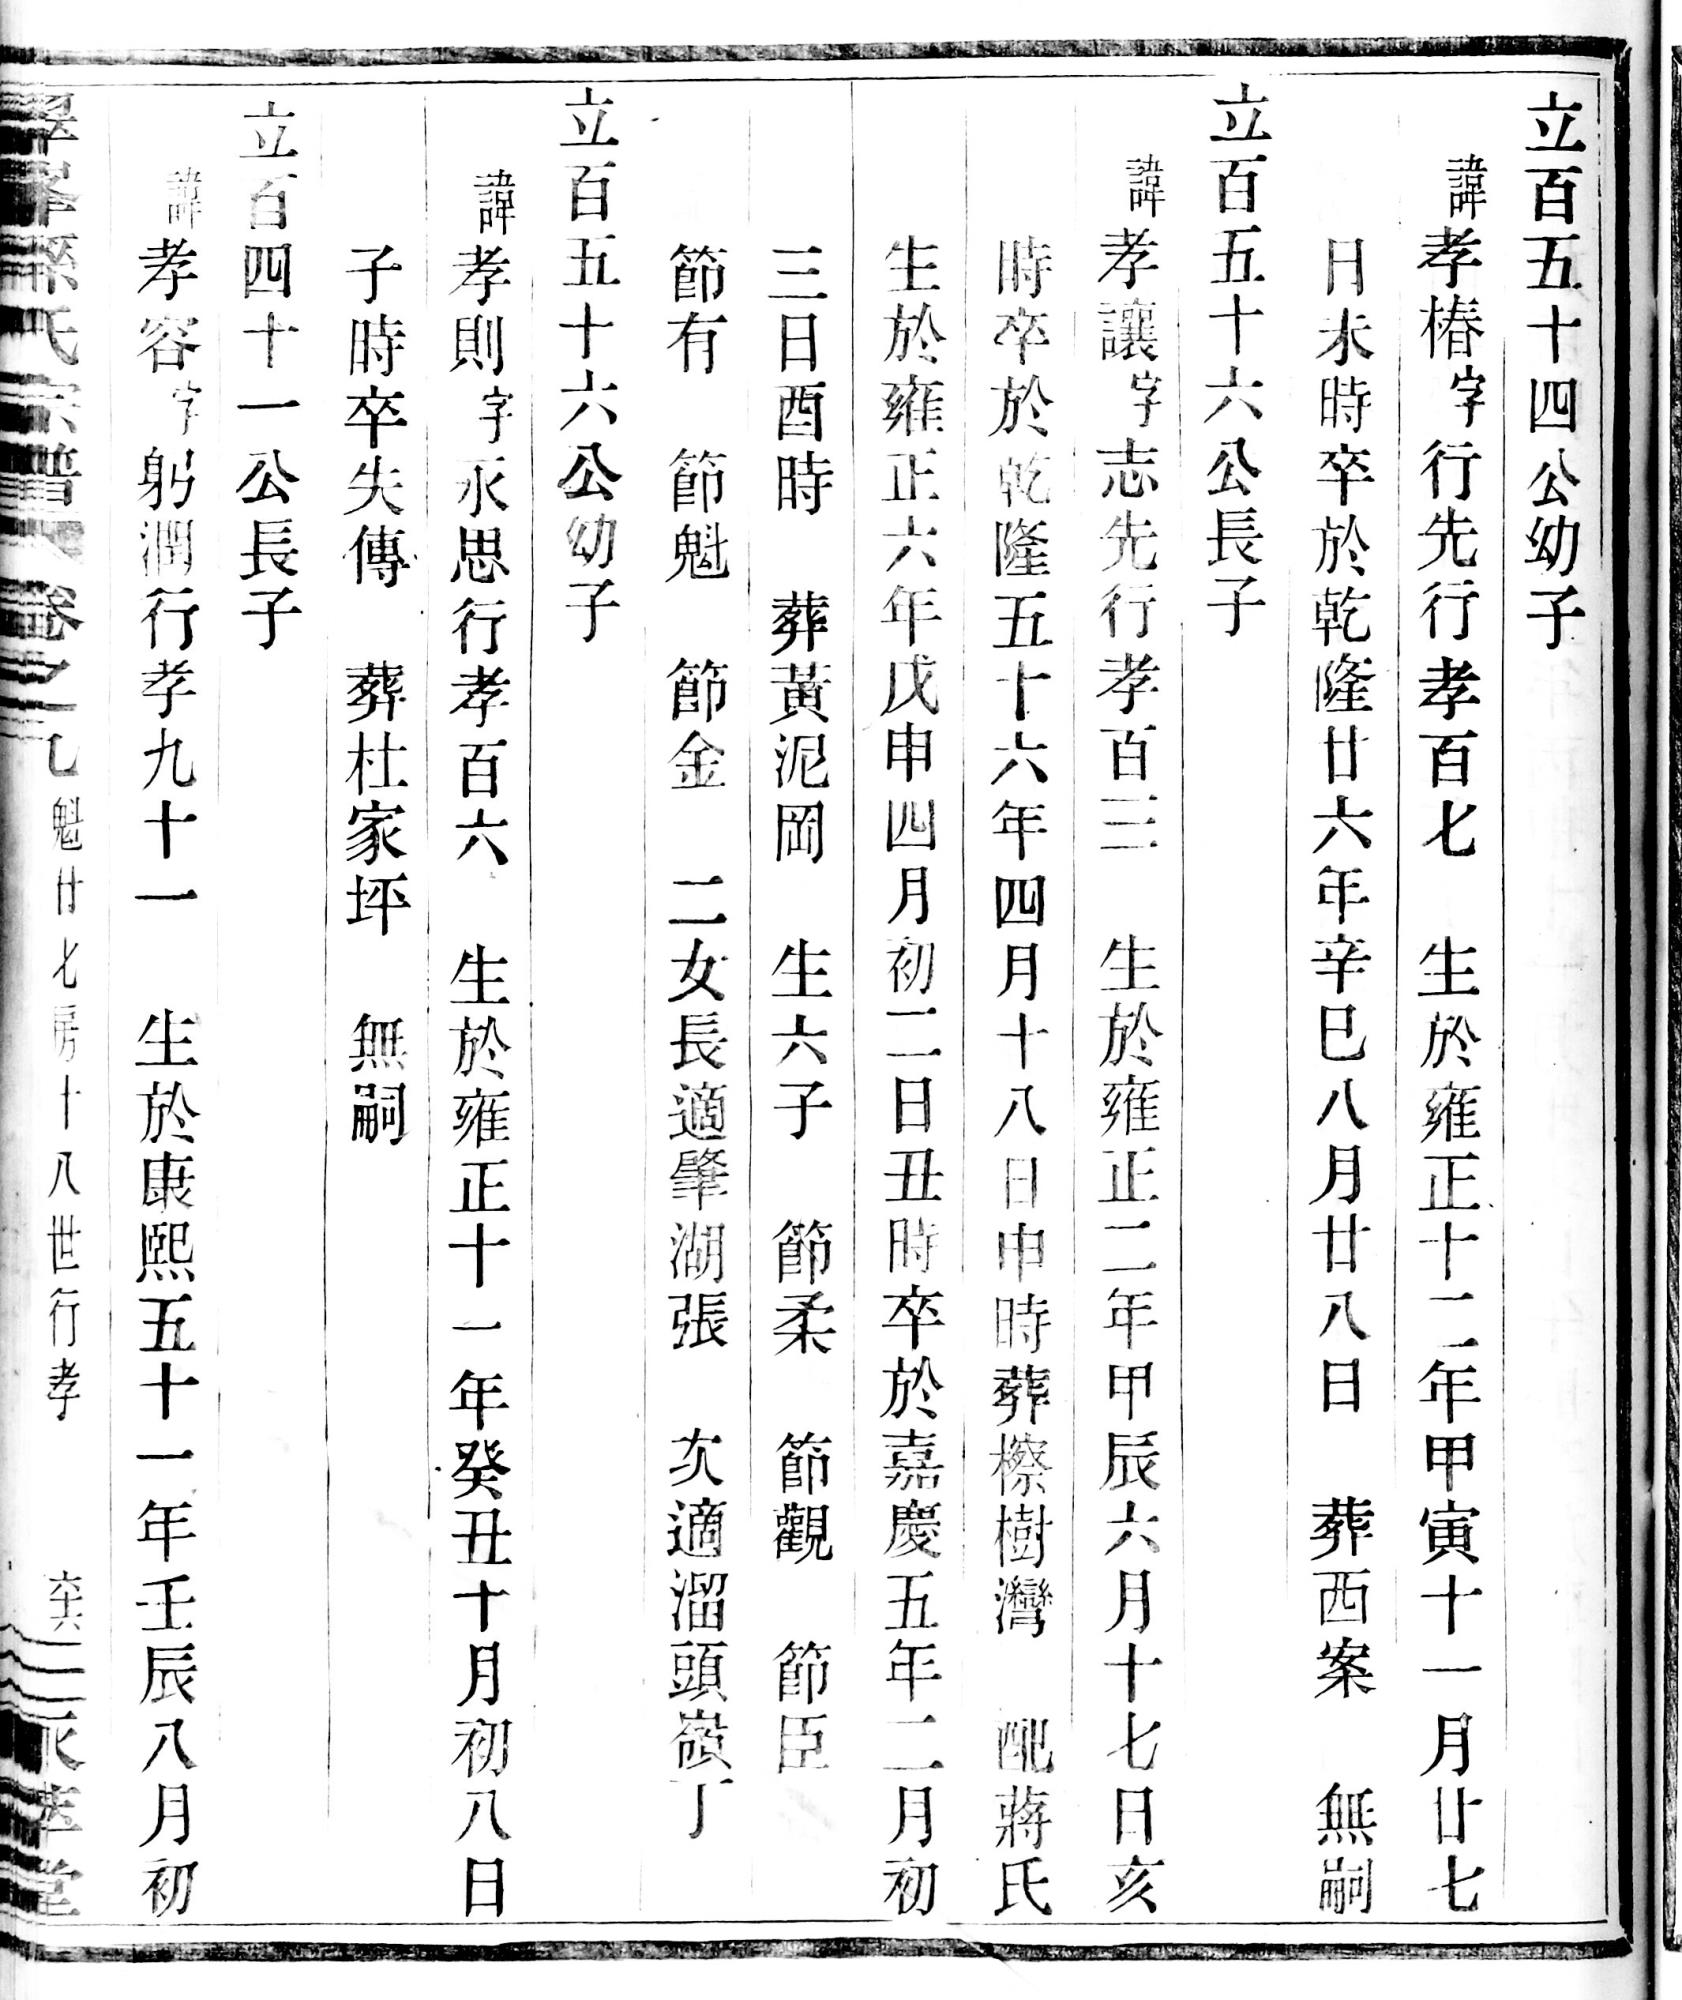 立百五十四公幼子
諱孝椿字行先行孝百七　生於雍正十二年甲寅十一月廿七
日未時卒於乾隆廿六年辛巳八月廿八日　葬西案　無嗣
立百五十六公長子
諱孝讓字志先行孝百三　生於雍正二年甲辰六月十七日亥
時卒於乾隆五十六年四月十八日申時葬檫樹灣　配蔣氏
生於雍正六年戊申四月初二日丑時卒於嘉慶五年二月初
三日酉時　葬黃泥岡　生六子　節柔　節觀　節臣
節有　節魁　節金　二女長適肇湖張　次適溜頭嶺丁
立百五十六公幼子
諱孝則字永思行孝百六　生於雍正十一年癸丑十月初八日
子時卒失傳　葬杜家坪　無嗣
立百四十一公長子
諱孝容字躬潤行孝九十一　生於康熙五十一年壬辰八月初
孫氏宗譜　卷之乙　魁廿七房十八世行孝　永孝堂